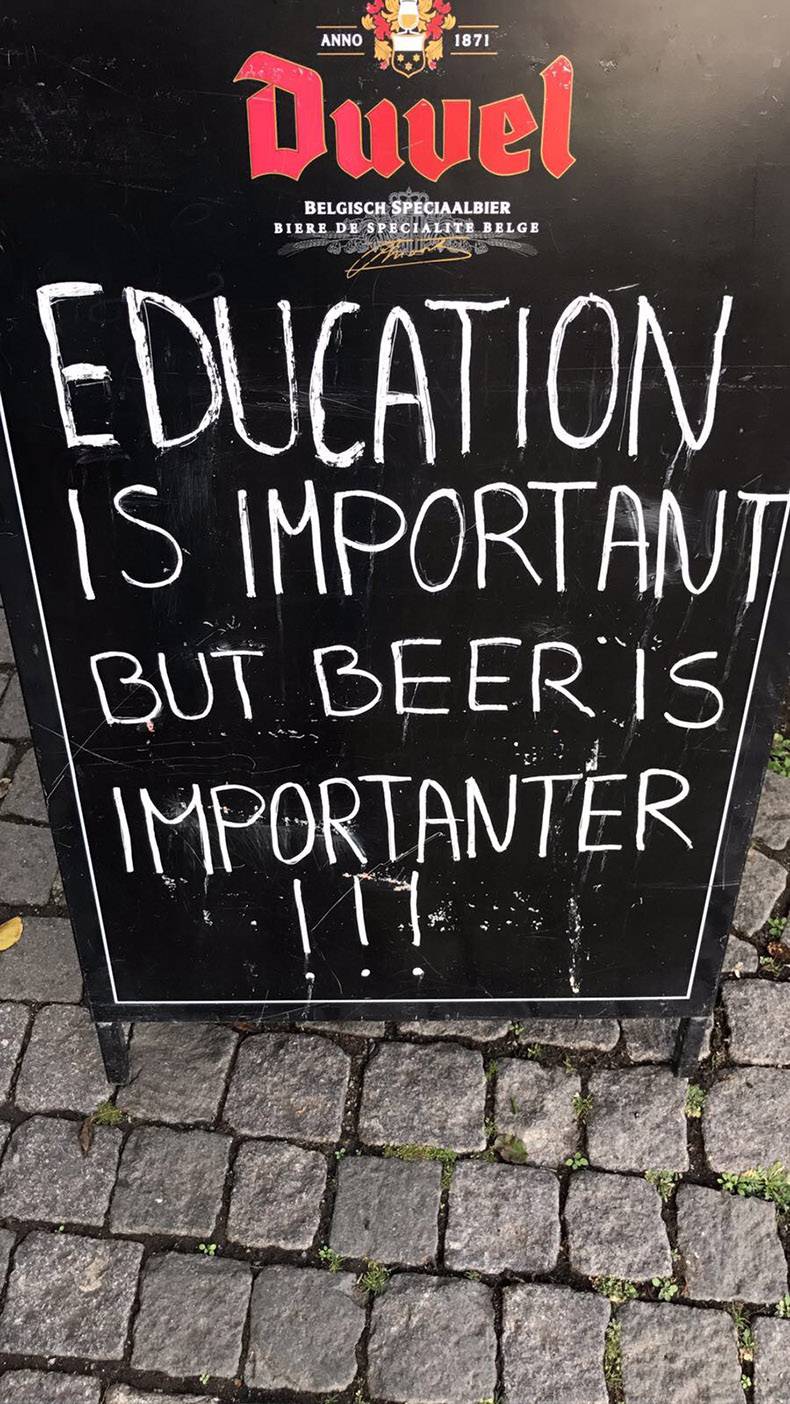 ANNO 1871
Duvel
BELGISCH SPECIAALBIER
BIERE DE SPECIALITE BELGE
EDUCATION
IS IMPORTANT
BUT BEER IS
IMPORTANTER
!!!